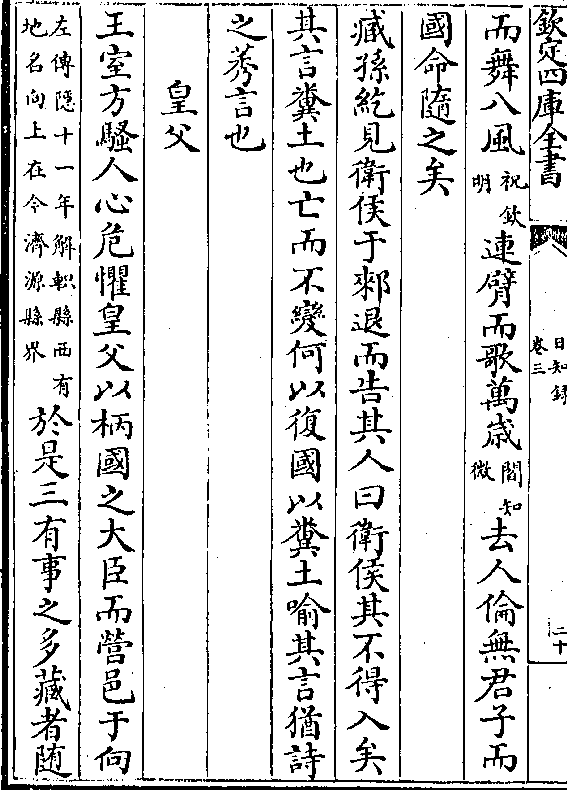 欽定四庫全書
日知錄
卷三
二十
而舞八風祝欽明連臂而歌萬歲閻知微去人倫無君子而
國命隨之矣
臧孫紇見衛侯于郲退而告其人曰衛侯其不得入矣
其言糞土也亡而不變何以復國以糞土喻其言猶詩
之莠言也
皇父
王室方騷人心危懼皇父以柄國之大臣而營邑于向
左傳隱十一年解軹縣西有
地名向上在今濟源縣界
於是三有事之多藏者随